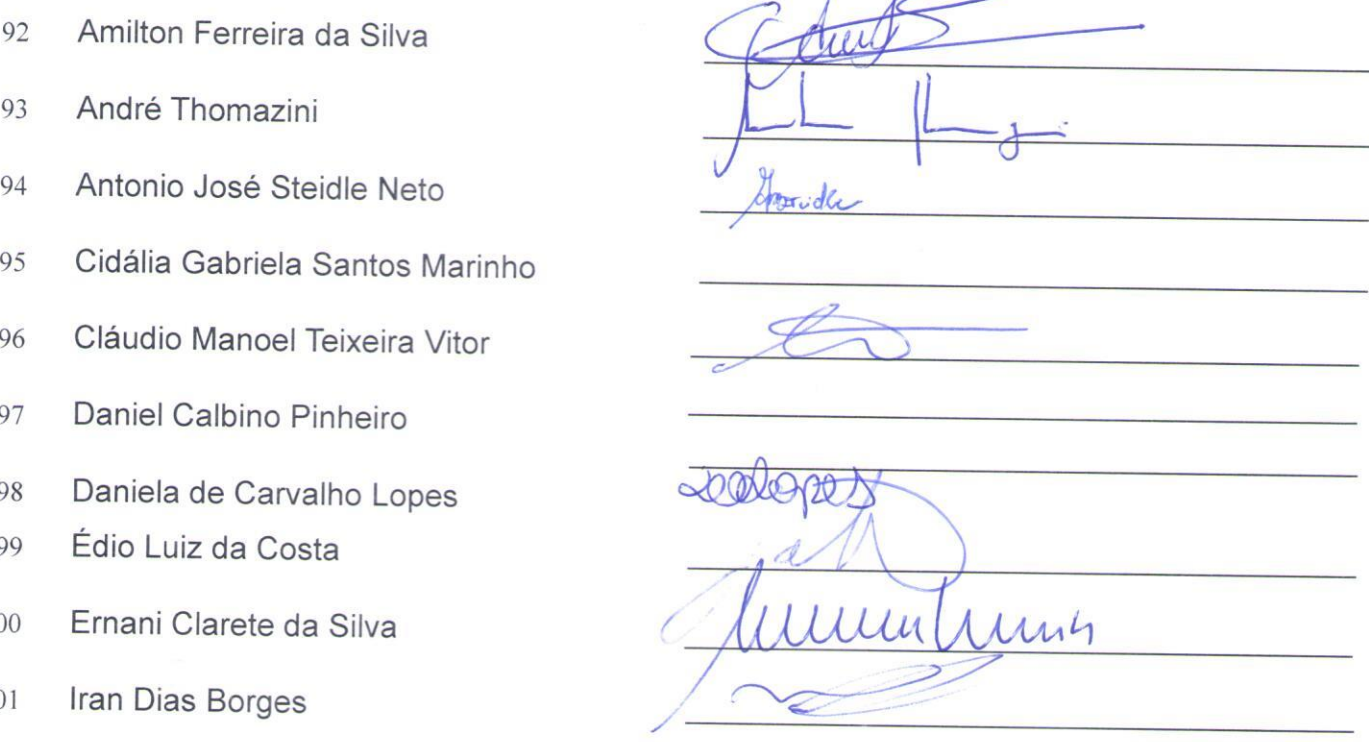 92 Amilton Ferreira da Silva
93 André Thomazini
94 Antonio José Steidle Neto
95 Cidália Gabriela Santos Marinho
96 Cláudio Manoel Teixeira Vitor
97 Daniel Calbino Pinheiro
98 Daniela de Carvalho Lopes
99 Édio Luiz da Costa
00 Ernani Clarete da Silva
01 Iran Dias Borges